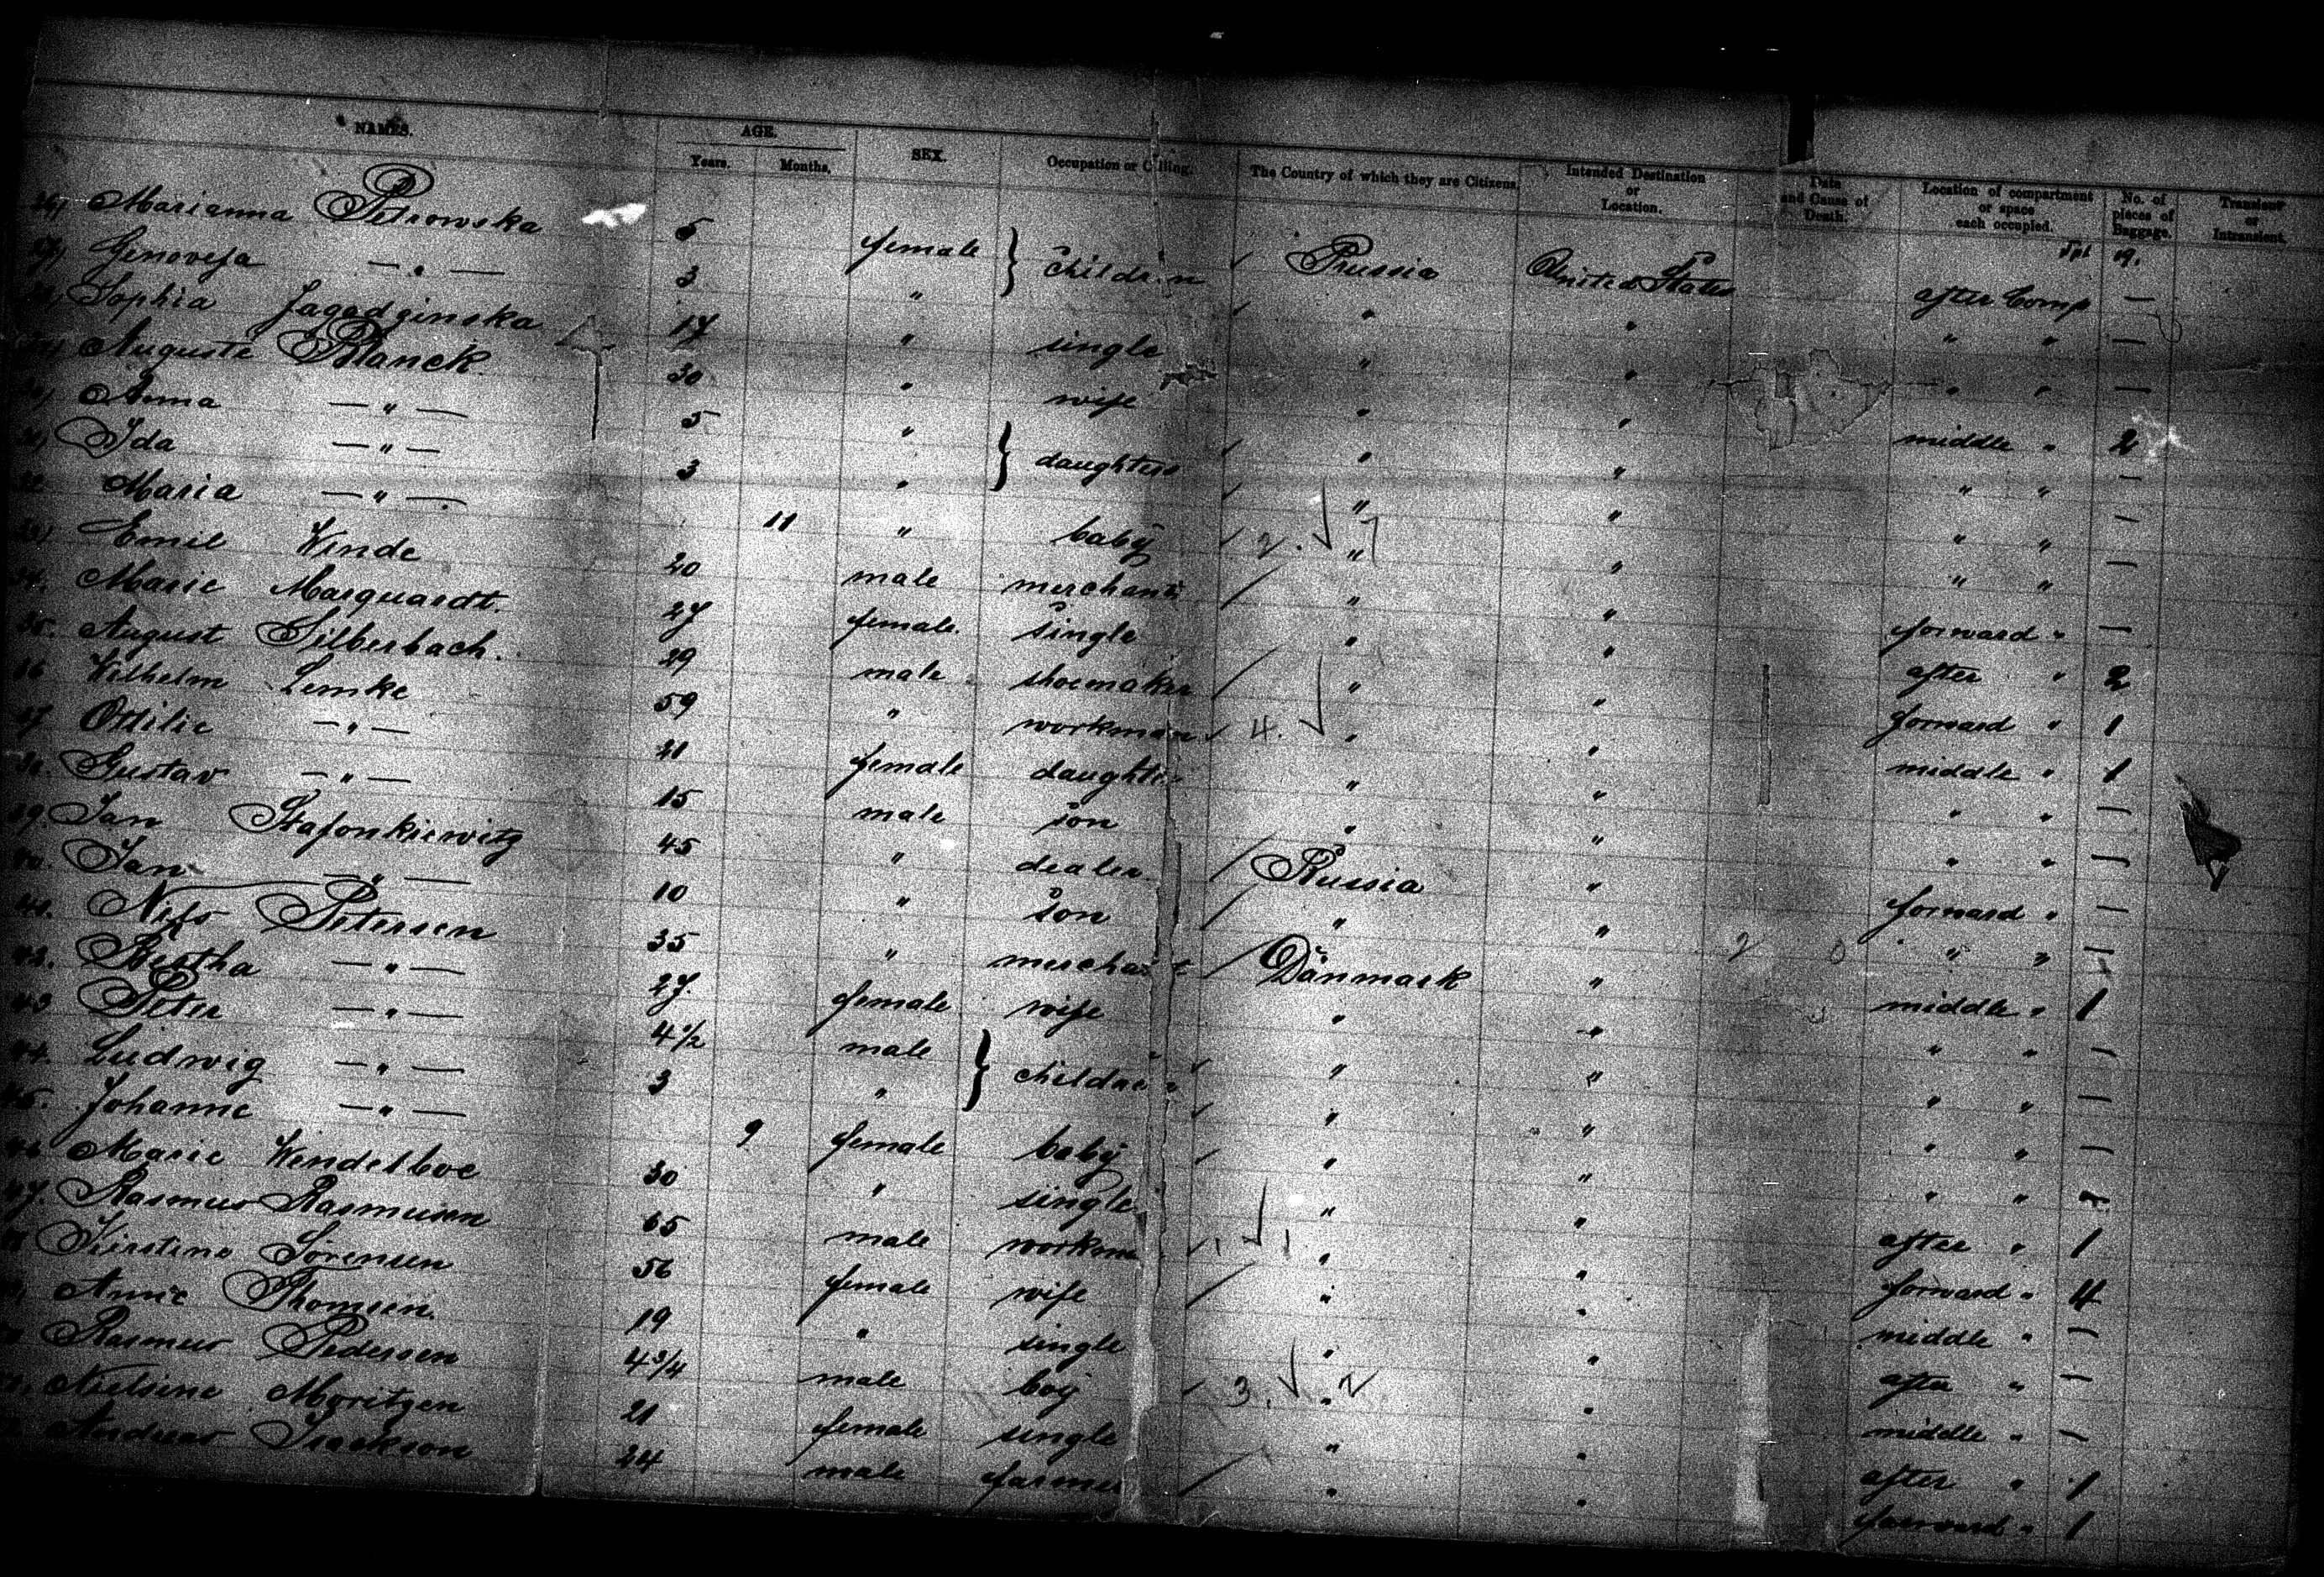 NAMES. AGE. Years. Months. SEX. Occupation or Calling. The Country of which they are Citizens. Intended Destination or Location. Date and Cause of Death. Location of compartment or space each occupied. No. of pieces of Baggage. Transient or Intransient.
Marianna Petrowska 5 female } children Prussia United States after Comp —
Genovefa — " — 3 " " " " " —
Sophia Jagodzinska 17 " single " " " " —
Auguste Planck 30 " wife " " middle " 2
Anna — " — 5 " } daughters " " " " —
Ida — " — 3 " " " " " —
Maria — " — 11 " baby 2. " " " " —
Emil Winde 20 male merchant " " forward " —
Marie Marquardt. 27 female. single " " after " 2
35. August Silberbach. 29 male shoemaker " " forward " 1
36 Wilhelm Lemke 59 " workman 4. " " middle " 1
37 Ottilie — " — 21 female daughter " " " " —
38. Gustav — " — 15 male son " " " " —
39. Jan Stafonkiewitz 45 " dealer Russia " forward " —
40. Jan — " — 10 " son " " " " —
41. Nils Petersen 35 " merchant Dänmark " middle " 1
42. Bertha — " — 27. female wife " " " " —
43 Peter — " — 4 1/2 male } children " " " " —
44. Ludwig — " — 3 " " " " " —
45. Johanne — " — 9 female baby " " " " —
46 Marie Wendelboe 30 " single " " after " 1
47. Rasmus Rasmusen 65 male workman " " forward " 4
Kirstine Sörensen 56 female wife " " middle " —
Anne Thomsen. 19 " single " " after " —
Rasmus Pedersen 4 3/4 male boy 3. " " middle " —
Nielsine Moritzen 21 female single " " after " 1
Andreas Isackson 24 male farmer " " forward " 1